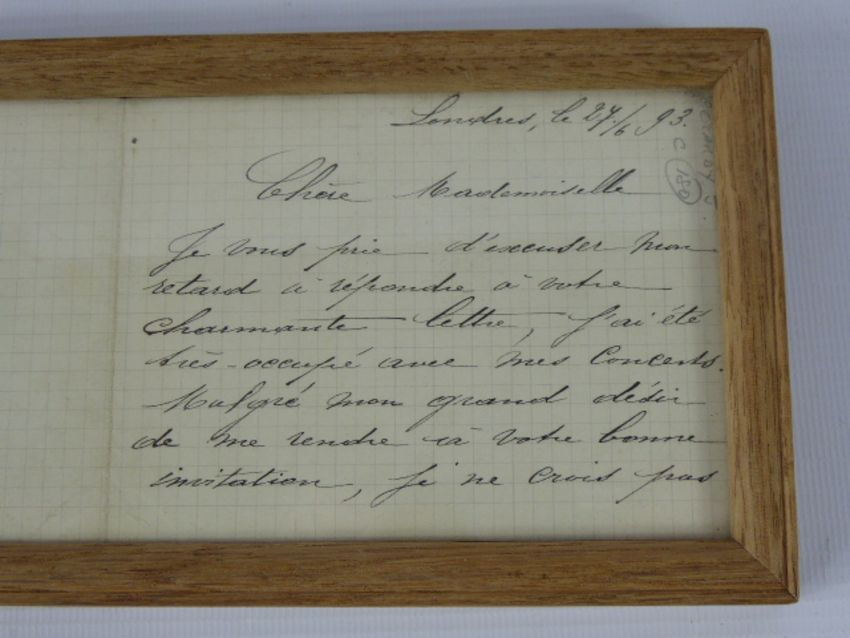 Londres, le 27/6 93.
Chère Mademoiselle
Je vous prie d'excuser mon
retard à répondre à votre
charmante lettre, j'ai été
très-occupé avec mes Concerts.
Malgré mon grand désir
de me rendre à votre bonne
invitation, je ne crois pas
C 180